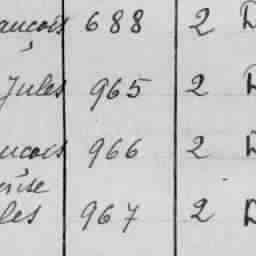 ançois 688 2 D
Jules 965 2 D
nçois 966 2 D
erise
les 967 2 D